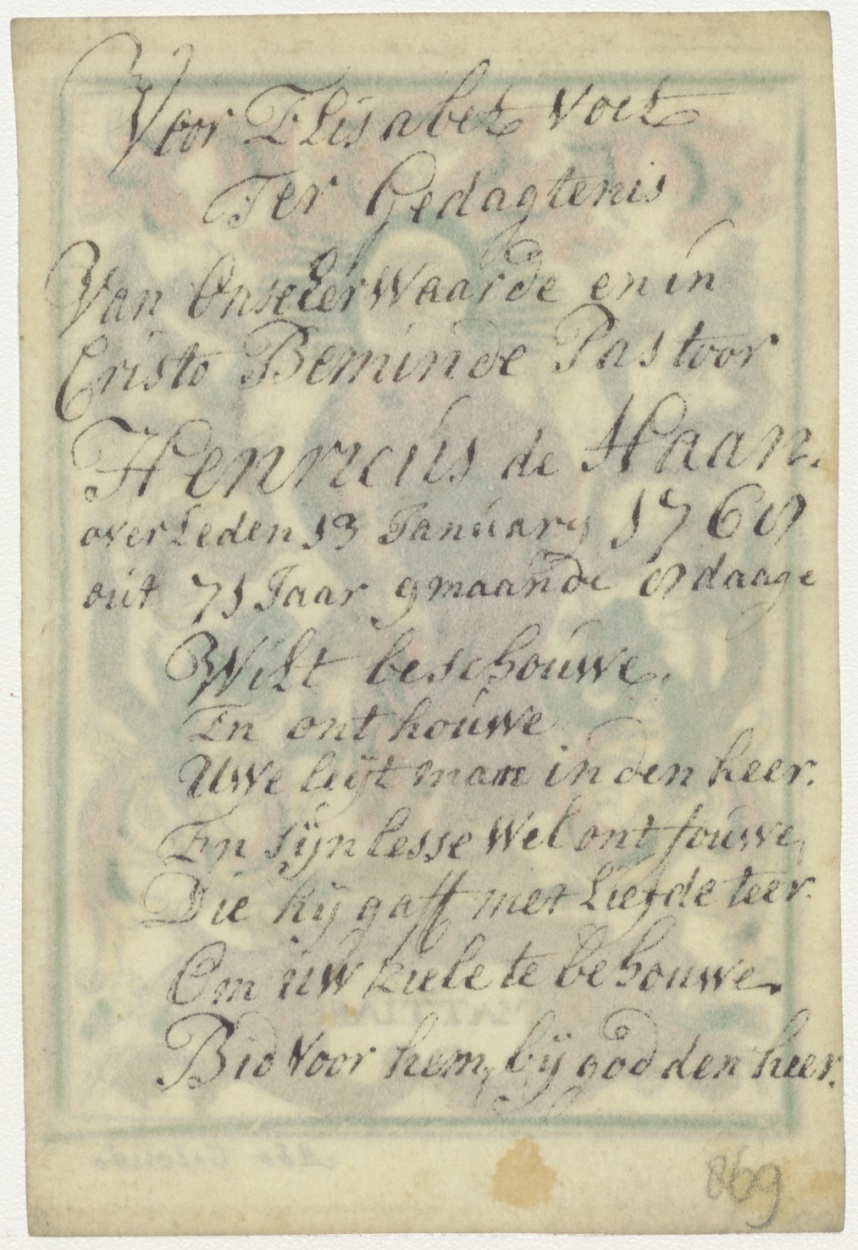 Voor Elisabet Voet
Ter Gedagtenis
Van Onse Eerwaarde en in
Cristo Beminde Pastoor
Henricús de Haan.
overleden 13 Janúary 1768
oút 71 Jaar 9 maande 8 daage
Wilt beschoúwe,
En onthoúwe
Uwe leijtman in den heer.
En sÿn lesse wel ontfoúwe,
Die hÿ gaff met Liefde teer.
Om úw ziele te behouwe.
Bid voor hem, bÿ god den heer.
869